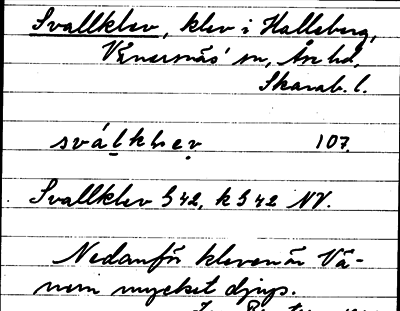 Svallklev, klev i Halleberg,
Vänersnäs' sn, Åse hd,
Skarab. l.
sválklev 107.
Svallklev G 42, k G 42 NV.
Nedanför kleven är Vä-
nern mycket djup.